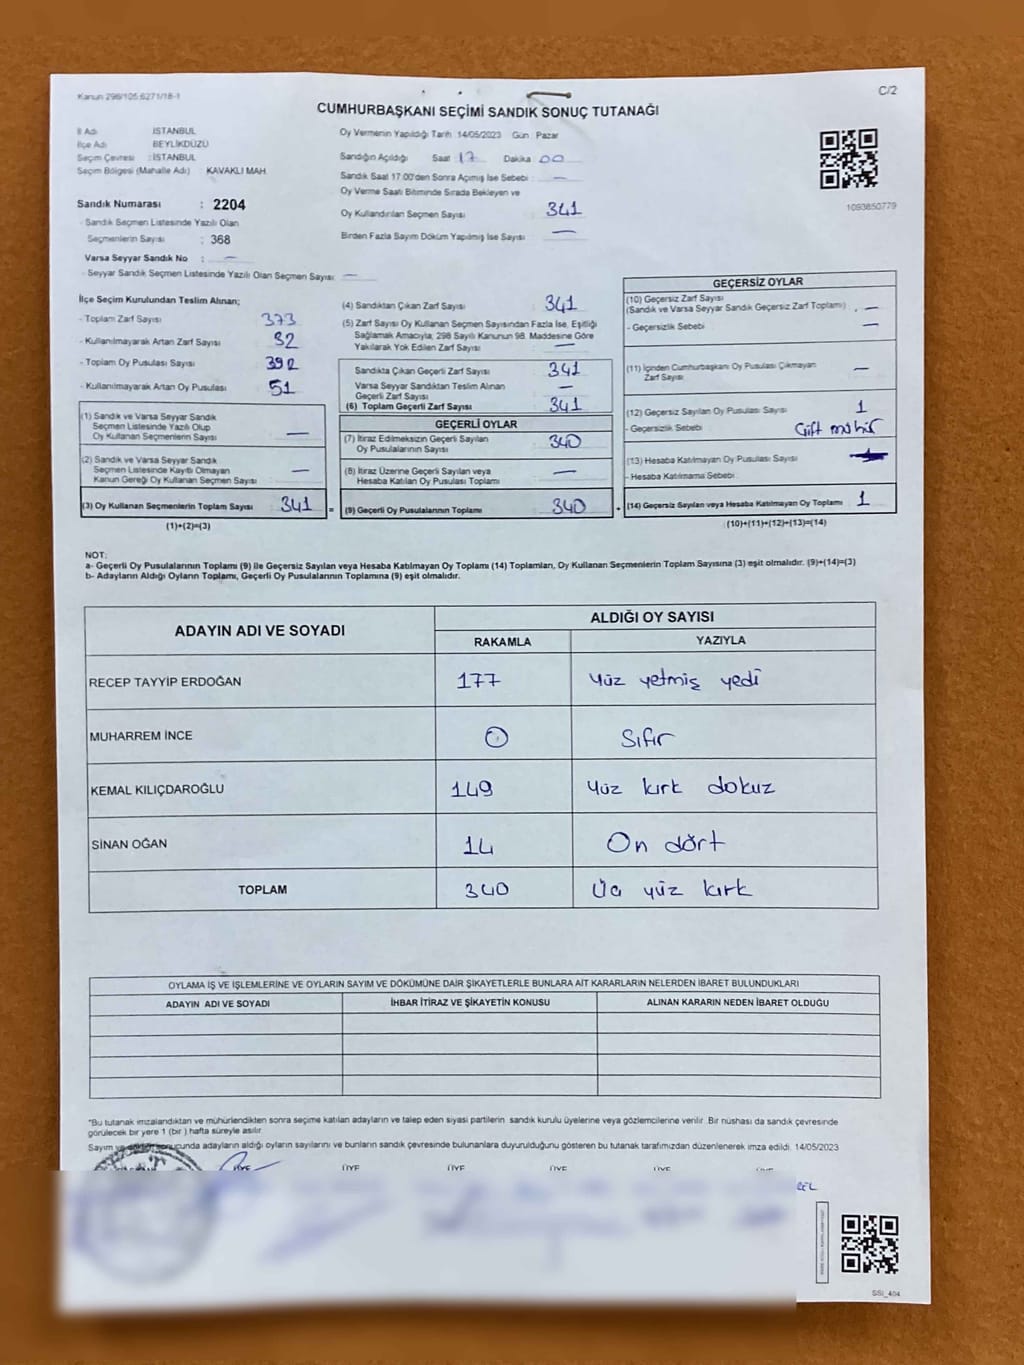 Kanun 298/105;6271/18-1
C/2
CUMHURBAŞKANI SEÇİMİ SANDIK SONUÇ TUTANAĞI
İl Adı : İSTANBUL
İlçe Adı : BEYLİKDÜZÜ
Seçim Çevresi : İSTANBUL
Seçim Bölgesi (Mahalle Adı) : KAVAKLI MAH.
Sandık Numarası : 2204
- Sandık Seçmen Listesinde Yazılı Olan
Seçmenlerin Sayısı : 368
Varsa Seyyar Sandık No : —
- Seyyar Sandık Seçmen Listesinde Yazılı Olan Seçmen Sayısı : —
Oy Vermenin Yapıldığı Tarih : 14/05/2023 Gün : Pazar
Sandığın Açıldığı Saat 17 Dakika 00
Sandık Saat 17:00'den Sonra Açılmış İse Sebebi : —
Oy Verme Saati Bitiminde Sırada Bekleyen ve
Oy Kullandırılan Seçmen Sayısı 341
Birden Fazla Sayım Döküm Yapılmış İse Sayısı —
1093850779
İlçe Seçim Kurulundan Teslim Alınan;
- Toplam Zarf Sayısı : 373
- Kullanılmayarak Artan Zarf Sayısı : 32
- Toplam Oy Pusulası Sayısı : 392
- Kullanılmayarak Artan Oy Pusulası : 51
(1) Sandık ve Varsa Seyyar Sandık
Seçmen Listesinde Yazılı Olup
Oy Kullanan Seçmenlerin Sayısı —
(2) Sandık ve Varsa Seyyar Sandık
Seçmen Listesinde Kayıtlı Olmayan
Kanun Gereği Oy Kullanan Seçmen Sayısı —
(3) Oy Kullanan Seçmenlerin Toplam Sayısı : 341 =
(1)+(2)=(3)
(4) Sandıktan Çıkan Zarf Sayısı : 341
(5) Zarf Sayısı Oy Kullanan Seçmen Sayısından Fazla İse, Eşitliği
Sağlamak Amacıyla, 298 Sayılı Kanunun 98. Maddesine Göre
Yakılarak Yok Edilen Zarf Sayısı : —
Sandıkta Çıkan Geçerli Zarf Sayısı : 341
Varsa Seyyar Sandıktan Teslim Alınan
Geçerli Zarf Sayısı : —
(6) Toplam Geçerli Zarf Sayısı : 341
GEÇERLİ OYLAR
(7) İtiraz Edilmeksizin Geçerli Sayılan
Oy Pusulalarının Sayısı : 340
(8) İtiraz Üzerine Geçerli Sayılan veya
Hesaba Katılan Oy Pusulası Toplamı : —
(9) Geçerli Oy Pusulalarının Toplamı : 340 +
GEÇERSİZ OYLAR
(10) Geçersiz Zarf Sayısı
(Sandık ve Varsa Seyyar Sandık Geçersiz Zarf Toplamı) : —
- Geçersizlik Sebebi : —
(11) İçinden Cumhurbaşkanı Oy Pusulası Çıkmayan
Zarf Sayısı : —
(12) Geçersiz Sayılan Oy Pusulası Sayısı : 1
- Geçersizlik Sebebi : Çift mühür
(13) Hesaba Katılmayan Oy Pusulası Sayısı :
- Hesaba Katılmama Sebebi :
(14) Geçersiz Sayılan veya Hesaba Katılmayan Oy Toplamı : 1
(10)+(11)+(12)+(13)=(14)
NOT:
a- Geçerli Oy Pusulalarının Toplamı (9) ile Geçersiz Sayılan veya Hesaba Katılmayan Oy Toplamı (14) Toplamları, Oy Kullanan Seçmenlerin Toplam Sayısına (3) eşit olmalıdır. (9)+(14)=(3)
b- Adayların Aldığı Oyların Toplamı, Geçerli Oy Pusulalarının Toplamına (9) eşit olmalıdır.
ADAYIN ADI VE SOYADI
ALDIĞI OY SAYISI
RAKAMLA YAZIYLA
RECEP TAYYİP ERDOĞAN 177 Yüz yetmiş yedi
MUHARREM İNCE 0 Sıfır
KEMAL KILIÇDAROĞLU 149 Yüz kırk dokuz
SİNAN OĞAN 14 On dört
TOPLAM 340 Üç yüz kırk
OYLAMA İŞ VE İŞLEMLERİNE VE OYLARIN SAYIM VE DÖKÜMÜNE DAİR ŞİKAYETLERLE BUNLARA AİT KARARLARIN NELERDEN İBARET BULUNDUKLARI
ADAYIN ADI VE SOYADI İHBAR İTİRAZ VE ŞİKAYETİN KONUSU ALINAN KARARIN NEDEN İBARET OLDUĞU
*Bu tutanak imzalandıktan ve mühürlendikten sonra seçime katılan adayların ve talep eden siyasi partilerin sandık kurulu üyelerine veya gözlemcilerine verilir. Bir nüshası da sandık çevresinde
görülecek bir yere 1 (bir) hafta süreyle asılır.
Sayım ve sonucunda adayların aldığı oyların sayılarını ve bunların sandık çevresinde bulunanlara duyurulduğunu gösteren bu tutanak tarafımızdan düzenlenerek imza edildi. 14/05/2023
ÜYE ÜYE ÜYE ÜYE ÜYE
SSİ_404